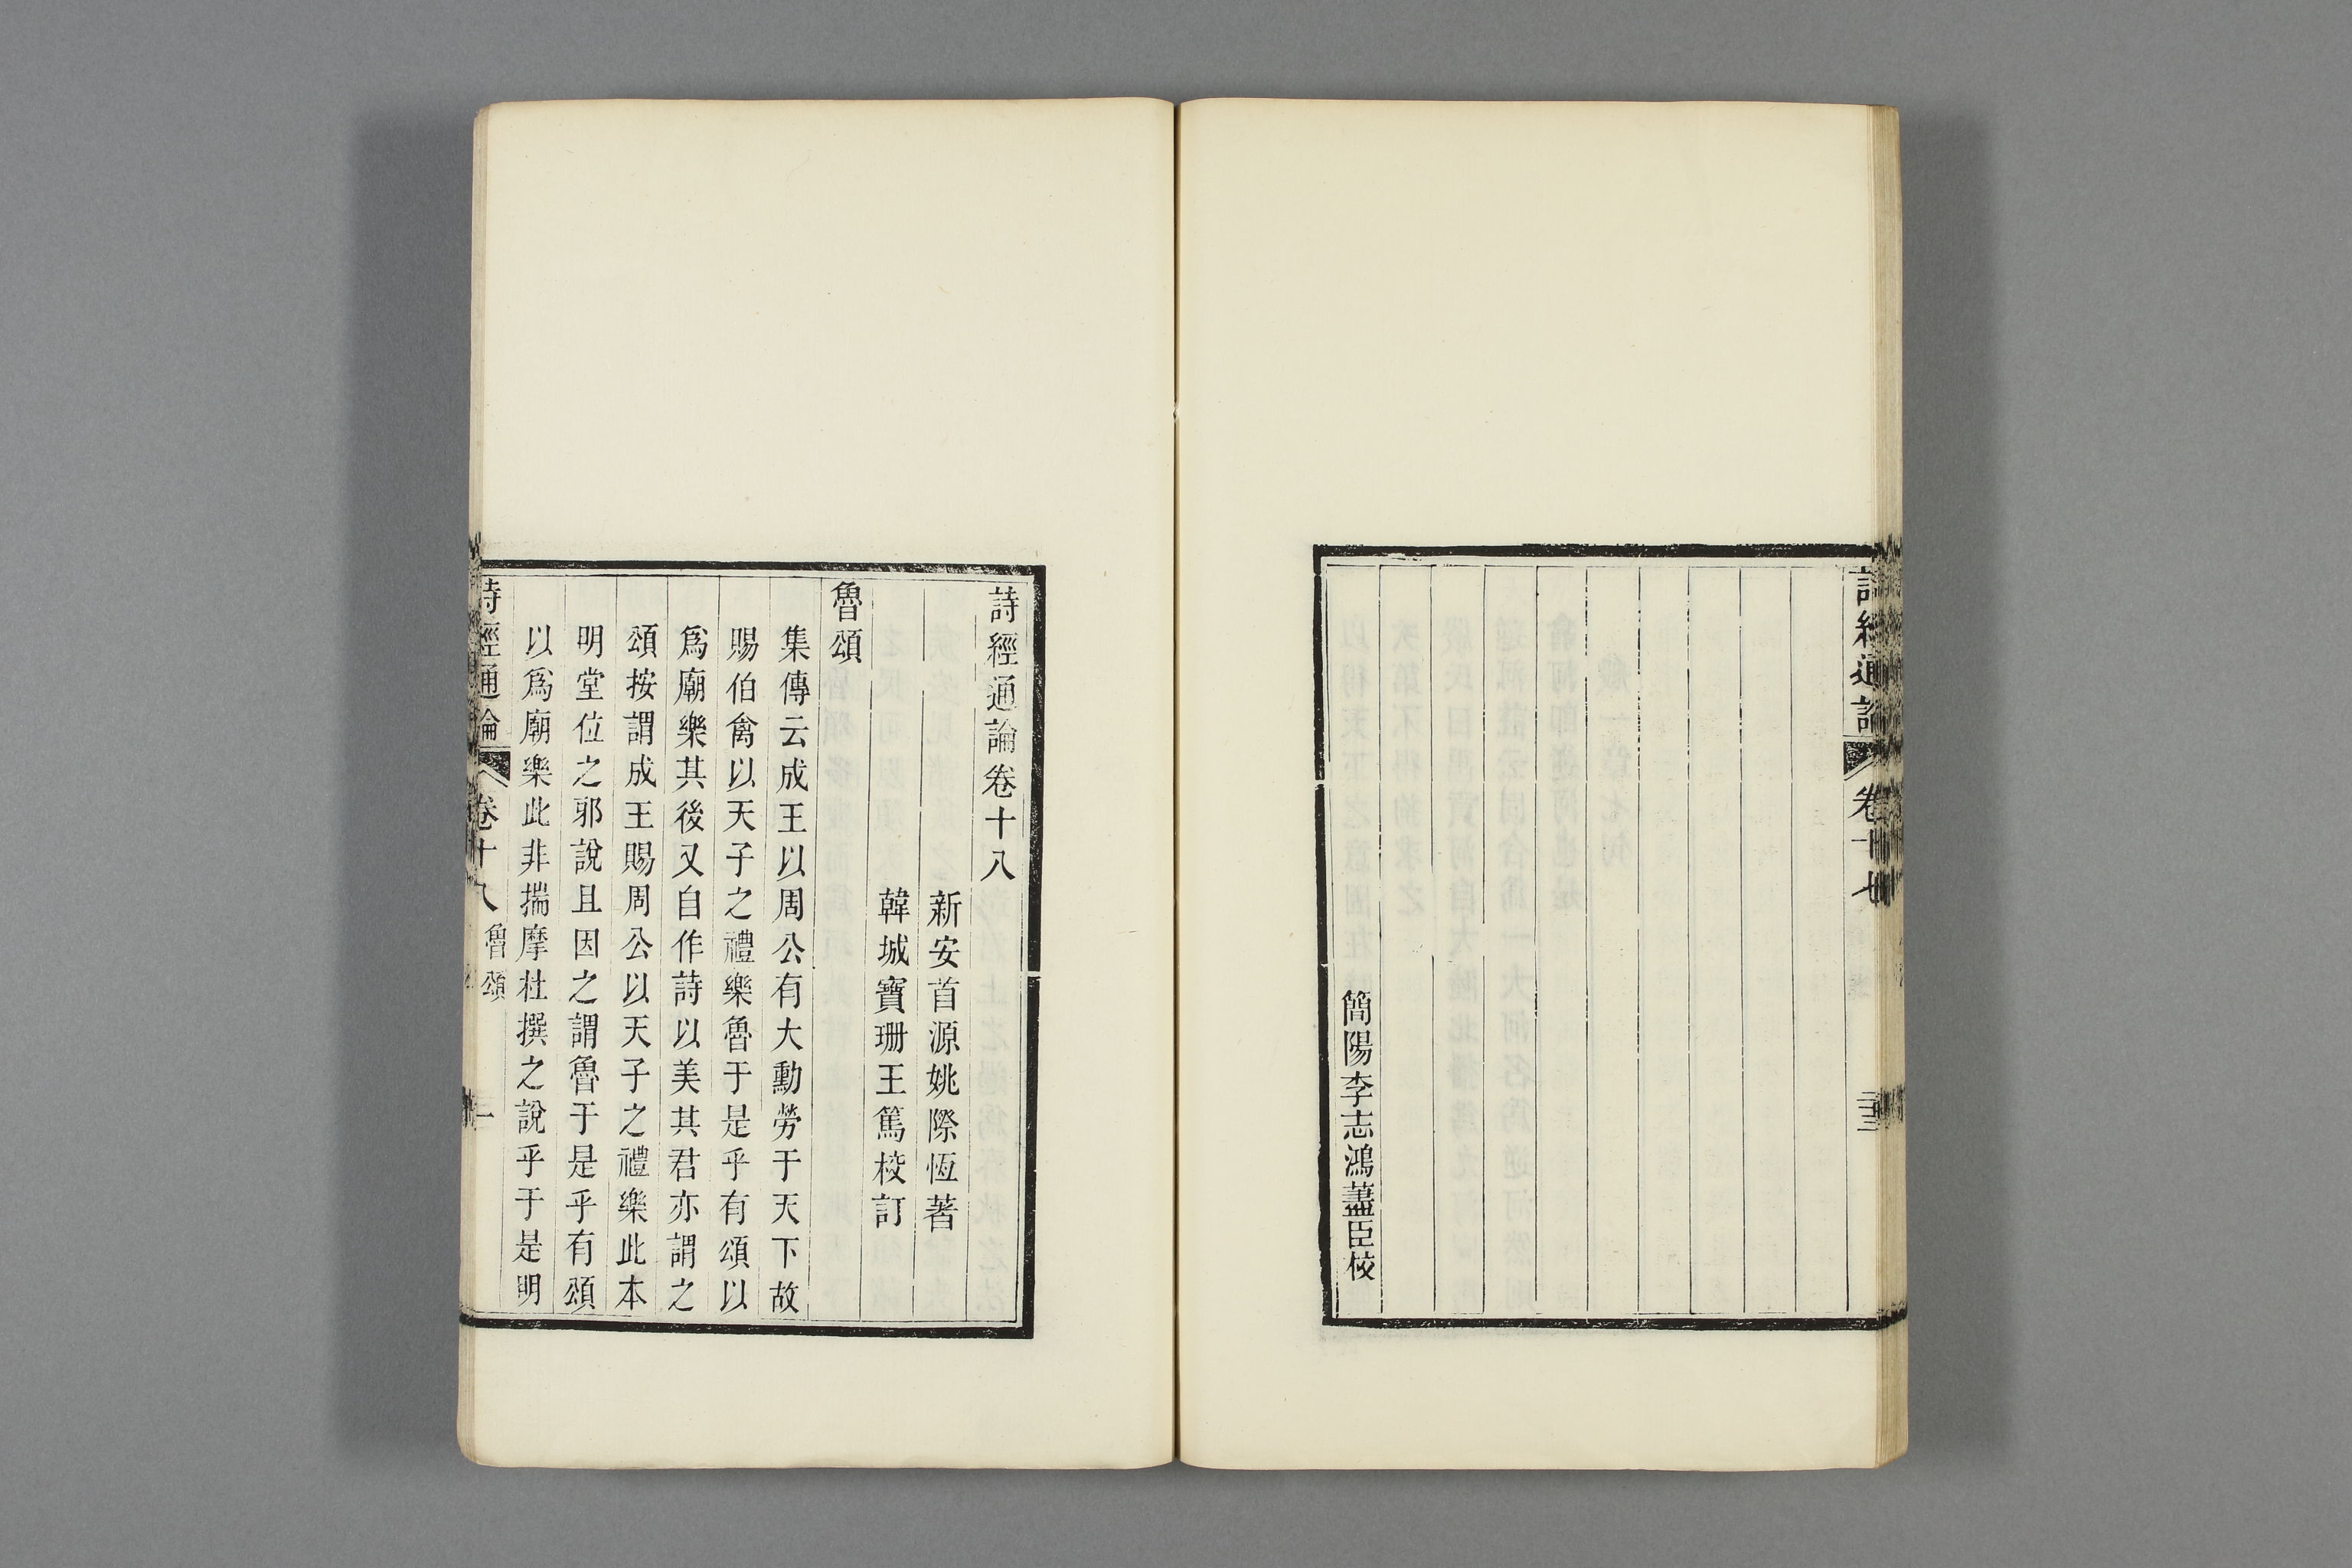 詩經通論
卷十七
簡陽李志鴻藎臣校
詩經通論卷十八
新安首源姚際恆著
韓城寶珊王篤校訂
魯頌
集傳云成王以周公有大勳勞于天下故
賜伯禽以天子之禮樂魯于是乎有頌以
爲廟樂其後又自作詩以美其君亦謂之
頌按謂成王賜周公以天子之禮樂此本
明堂位之邪說且因之謂魯于是乎有頌
以爲廟樂此非揣摩杜撰之說乎于是明
詩經通論
卷十八
魯頌
一